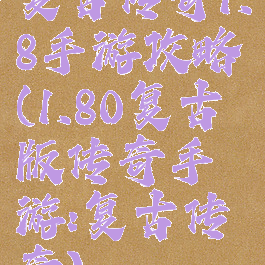 复古传奇1.
8手游攻略
(1.80复古
版传奇手
游:复古传
奇)